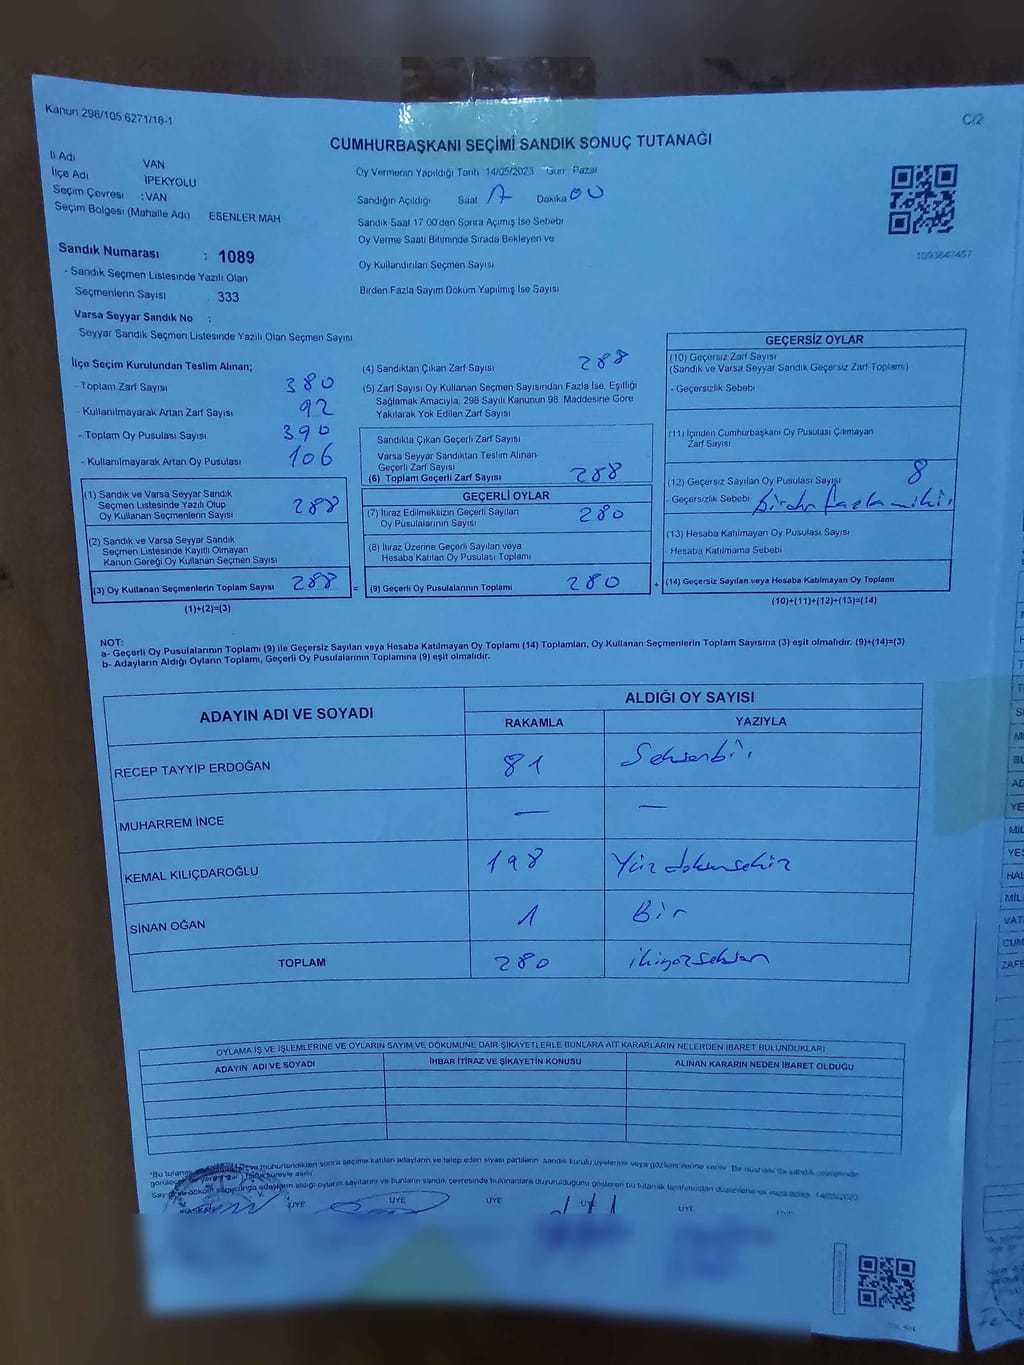 Kanun 298/105 6271/16-1
C/2
CUMHURBAŞKANI SEÇİMİ SANDIK SONUÇ TUTANAĞI
İl Adı VAN
İlçe Adı İPEKYOLU
Seçim Çevresi : VAN
Seçim Bölgesi (Mahalle Adı) ESENLER MAH
Sandık Numarası : 1089
- Sandık Seçmen Listesinde Yazılı Olan
Seçmenlerin Sayısı 333
Varsa Seyyar Sandık No :
Seyyar Sandık Seçmen Listesinde Yazılı Olan Seçmen Sayısı
Oy Vermenin Yapıldığı Tarih 14/05/2023 Gün Pazar
Sandığın Açıldığı Saat 17 Dakika 00
Sandık Saat 17 00'den Sonra Açılmış İse Sebebi
Oy Verme Saati Bitiminde Sırada Bekleyen ve
Oy Kullandırılan Seçmen Sayısı
Birden Fazla Sayım Döküm Yapılmış İse Sayısı
1093643457
İlçe Seçim Kurulundan Teslim Alınan;
- Toplam Zarf Sayısı 380
- Kullanılmayarak Artan Zarf Sayısı 92
- Toplam Oy Pusulası Sayısı 390
- Kullanılmayarak Artan Oy Pusulası 106
(1) Sandık ve Varsa Seyyar Sandık
Seçmen Listesinde Yazılı Olup
Oy Kullanan Seçmenlerin Sayısı 288
(2) Sandık ve Varsa Seyyar Sandık
Seçmen Listesinde Kayıtlı Olmayan
Kanun Gereği Oy Kullanan Seçmen Sayısı
(3) Oy Kullanan Seçmenlerin Toplam Sayısı 288 =
(1)+(2)=(3)
(4) Sandıktan Çıkan Zarf Sayısı 288
(5) Zarf Sayısı Oy Kullanan Seçmen Sayısından Fazla İse, Eşitliği
Sağlamak Amacıyla, 298 Sayılı Kanunun 98. Maddesine Göre
Yakılarak Yok Edilen Zarf Sayısı
Sandıkta Çıkan Geçerli Zarf Sayısı
Varsa Seyyar Sandıktan Teslim Alınan
Geçerli Zarf Sayısı
(6) Toplam Geçerli Zarf Sayısı 288
GEÇERLİ OYLAR
(7) İtiraz Edilmeksizin Geçerli Sayılan
Oy Pusulalarının Sayısı 280
(8) İtiraz Üzerine Geçerli Sayılan veya
Hesaba Katılan Oy Pusulası Toplamı
(9) Geçerli Oy Pusulalarının Toplamı 280 +
GEÇERSİZ OYLAR
(10) Geçersiz Zarf Sayısı
(Sandık ve Varsa Seyyar Sandık Geçersiz Zarf Toplamı)
- Geçersizlik Sebebi
(11) İçinden Cumhurbaşkanı Oy Pusulası Çıkmayan
Zarf Sayısı
(12) Geçersiz Sayılan Oy Pusulası Sayısı 8
- Geçersizlik Sebebi Birden fazla mühür
(13) Hesaba Katılmayan Oy Pusulası Sayısı
- Hesaba Katılmama Sebebi
(14) Geçersiz Sayılan veya Hesaba Katılmayan Oy Toplamı
(10)+(11)+(12)+(13)=(14)
NOT:
a- Geçerli Oy Pusulalarının Toplamı (9) ile Geçersiz Sayılan veya Hesaba Katılmayan Oy Toplamı (14) Toplamları, Oy Kullanan Seçmenlerin Toplam Sayısına (3) eşit olmalıdır. (9)+(14)=(3)
b- Adayların Aldığı Oyların Toplamı, Geçerli Oy Pusulalarının Toplamına (9) eşit olmalıdır.
ADAYIN ADI VE SOYADI
ALDIĞI OY SAYISI
RAKAMLA YAZIYLA
RECEP TAYYİP ERDOĞAN 81 Seksenbir
MUHARREM İNCE — —
KEMAL KILIÇDAROĞLU 198 Yüz doksansekiz
SİNAN OĞAN 1 Bir
TOPLAM 280 ikiyüzseksen
OYLAMA İŞ VE İŞLEMLERİNE VE OYLARIN SAYIM VE DÖKÜMÜNE DAİR ŞİKAYETLERLE BUNLARA AİT KARARLARIN NELERDEN İBARET BULUNDUKLARI
ADAYIN ADI VE SOYADI
İHBAR İTİRAZ VE ŞİKAYETİN KONUSU
ALINAN KARARIN NEDEN İBARET OLDUĞU
ve mühürlendikten sonra seçime katılan adayların ve talep eden siyasi partilerin sandık kurulu üyelerine veya gözlemcilerine verilir Bir nüshası da sandık çevresinde
adayların aldığı oyların sayılarını ve bunların sandık çevresinde bulunanlara duyurulduğunu gösteren bu tutanak tarafımızdan düzenlenerek imza edildi 14/05/2023
BAŞKAN ÜYE ÜYE ÜYE ÜYE ÜYE